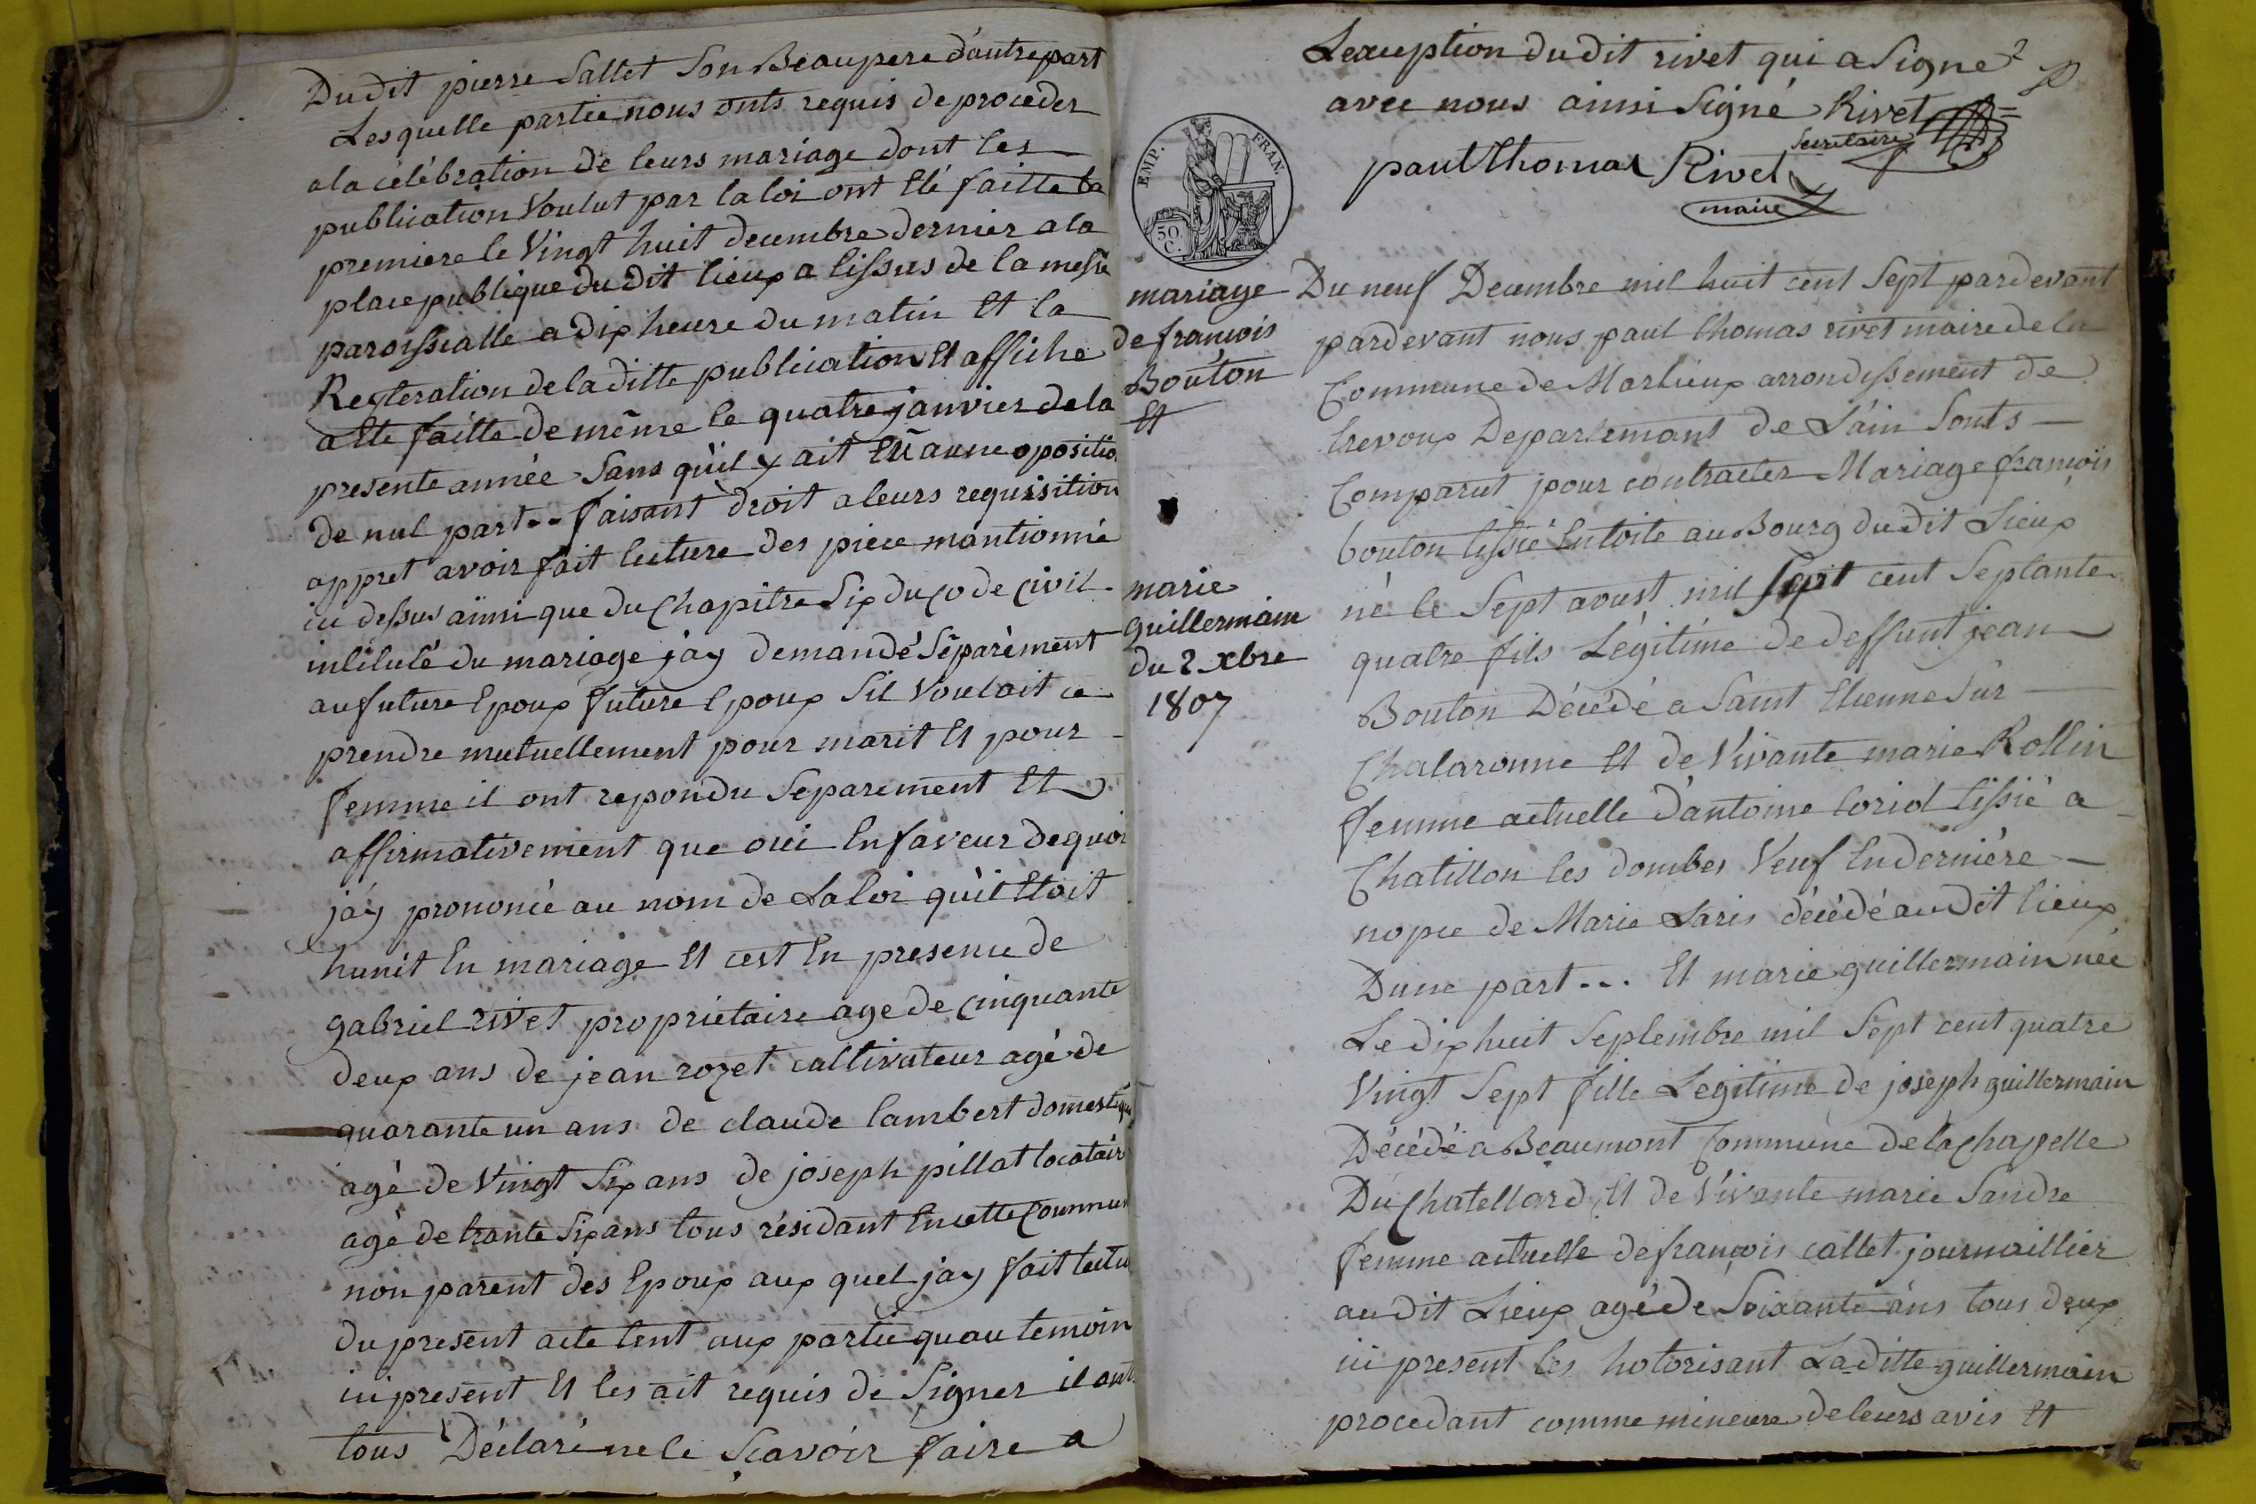 Dudit pierre Sallet Son Beaupere d'autre part
Lesquelle partie nous onts requis de proceder
a la célébration de leurs mariage dont les
publication Voulut par la loi ont Eté faitte la
premiere le Vingt huit decembre dernier a la
place publique du dit lieux a lissus de la messe
paroissialle a dix heure du matin Et la
Reyteration de la ditte publication Et affiche
a Ete faitte de même le quatre janvier de la
presente année Sans qu'il y ait Eu aucune opositio
de nul part -- faisant droit a leurs requisition
appret avoir fait lecture des piece mantionné
ici dessus ainsi que du Chapitre Six du code Civil
intitulé du mariage j'ay demandé Séparément
au future Epoux future Epoux Sil Voulait ce
prendre mutuellement pour marit Et pour
femme il ont repondu Separement Et
affirmativement que oui En faveur de quoi
j'ay prononcé au nom de La loi qu'il Etoit
hunit En mariage Et cest En presence de
gabriel rivet proprietaire age de cinquante
deux ans de jean rozet caltivateur agé de
quarante un ans de claude lambert domestique
agé de Vingt Six ans de joseph pillat locatair
agé de trante Six ans tous résidant En cette Commun
non parent des Epoux aux quel jay fait lectu
du present acte tent aux partie quau temoin
ici present Et les ait requis de Signer il ont
tous Déclaré ne le Scavoir faire a
Lexception du dit rivet qui a Signe
avec nous ainsi Signé Rivet
Secretaire
paul thomas Rivet
maire
EMP. FRAN.
50 C.
mariage
de francois
Bouton
Et
marie
guillermain
du 2 xbre
1807
Du neuf Decembre mil huit cent Sept pardevant
pardevant nous paul thomas rivet maire de la
Commune de Marlieux arrondissement de
trevoux Departemant de L'ain Sonts
Comparut pour contracter Mariage francois
bouton tissié En toile au Bourg du dit Lieux
né le Sept avust mil Sept cent Septante
quatre fils Légitime de deffunt jean
Bouton Décédé a Saint Etienne Sur
Chalaronne Et de Vivante marie Rollin
femme actuelle d'antoine loriol tissié a
Chatillon les dombes Veuf En derniére
nopce de Marie Laris décédé au dit lieux
Dune part ... Et marie guillermain née
Le dix huit Septembre mil Sept cent quatre
Vingt Sept fille Legitime de joseph guillermain
Décédé a Beaumont Commune de la Chapelle
Du Chatellard Et de Vivante marie Sandre
femme actuelle de francois callet journaillier
au dit Lieux agé de Soixante ans tous deux
ici present les hotorisant La ditte guillermain
procedant comme mineure de leurs avis Et